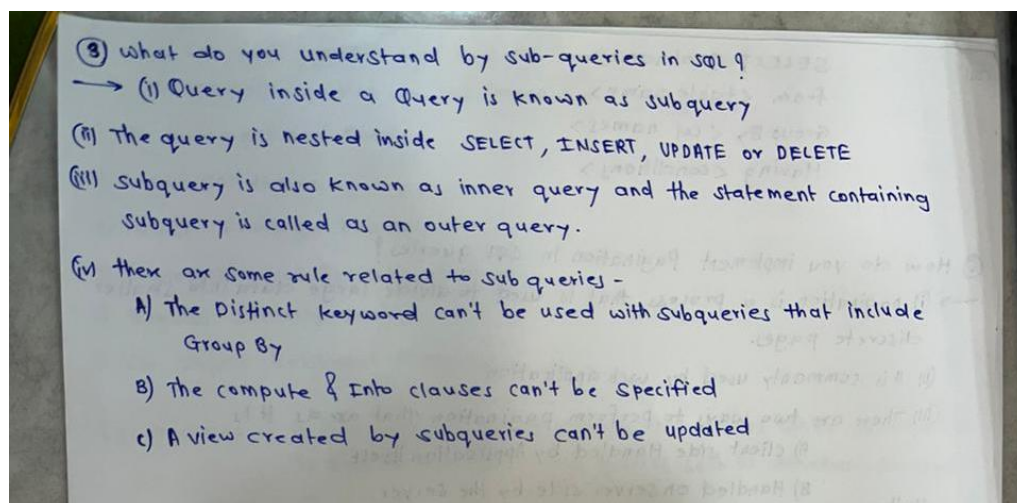 ③ What do you understand by sub-queries in SQL ?
→ (i) Query inside a Query is known as subquery
(ii) The query is nested inside SELECT, INSERT, UPDATE or DELETE
(iii) subquery is also known as inner query and the statement containing
subquery is called as an outer query.
(iv) there are some rule related to subqueries -
A) The Distinct keyword can't be used with subqueries that include
Group By
B) The compute & Into clauses can't be specified
c) A view created by subqueries can't be updated